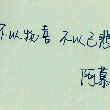 不以物喜 不以己悲
阿慕